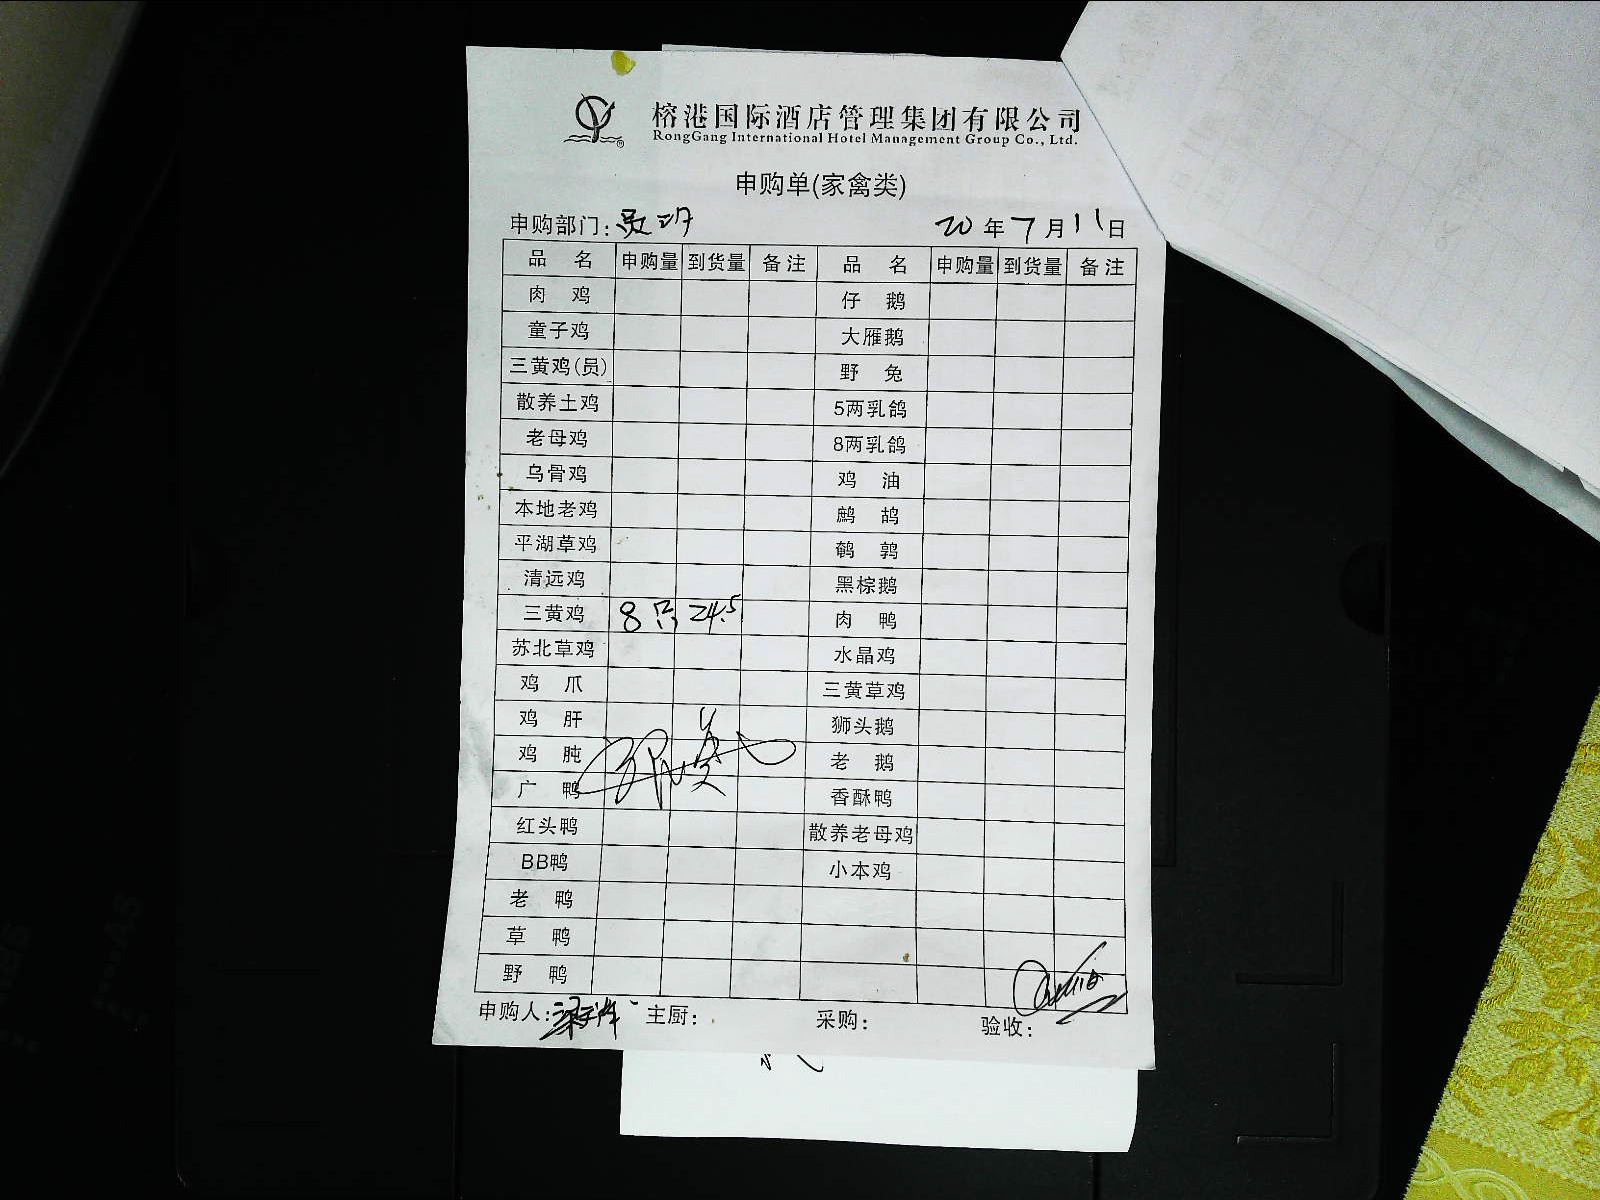 榕港国际酒店管理集团有限公司
RongGang International Hotel Management Group Co., Ltd.
申购单(家禽类)
申购部门:
20 年 7 月 11 日
品 名 申购量 到货量 备注 品 名 申购量 到货量 备注
肉 鸡 仔 鹅
童子鸡 大雁鹅
三黄鸡(员) 野 兔
散养土鸡 5两乳鸽
老母鸡 8两乳鸽
乌骨鸡 鸡 油
本地老鸡 鹧 鸪
平湖草鸡 鹌 鹑
清远鸡 黑棕鹅
三黄鸡 8只 24.5 肉 鸭
苏北草鸡 水晶鸡
鸡 爪 三黄草鸡
鸡 肝 狮头鹅
鸡 肫 老 鹅
广 鸭 香酥鸭
红头鸭 散养老母鸡
BB鸭 小本鸡
老 鸭
草 鸭
野 鸭
申购人: 主厨: 采购: 验收: